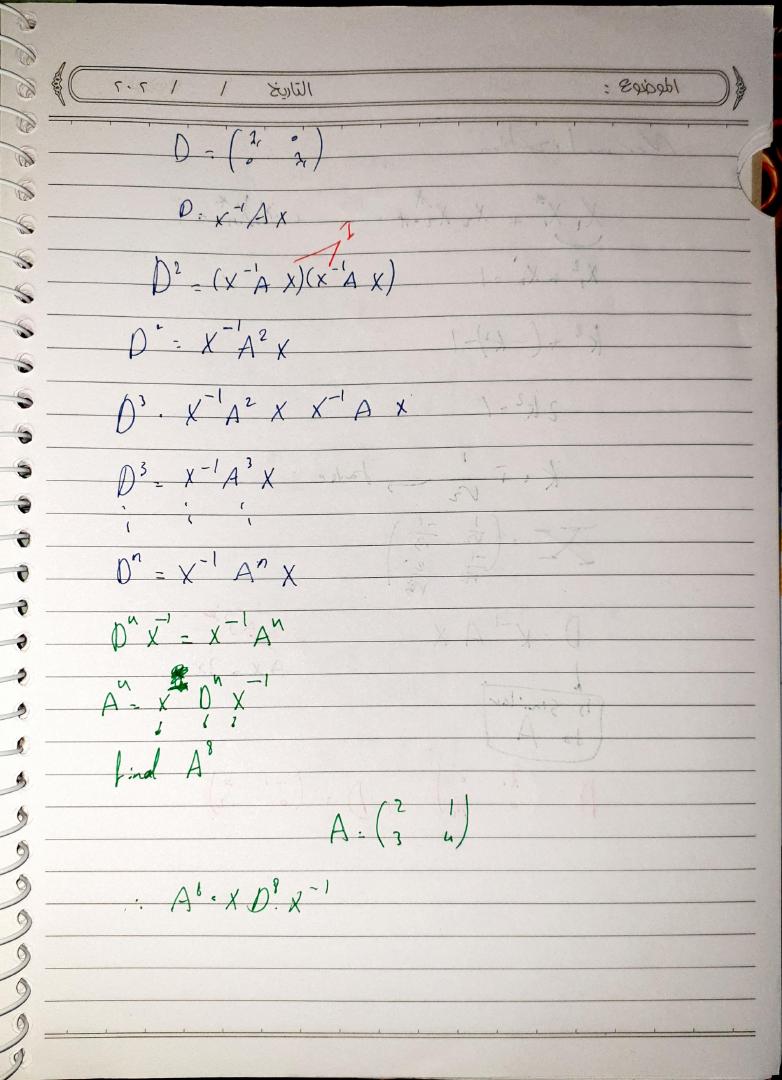 الموضوع : التاريخ / / ٢٠٢
D = (λ₁ 0
0 λ₁)
D = x⁻¹ A x
I
D² = (x⁻¹A x)(x⁻¹A x)
D² = x⁻¹A² x
D³ = x⁻¹A² x x⁻¹ A x
D³ = x⁻¹ A³ x
Dⁿ = x⁻¹ Aⁿ x
Dⁿ x⁻¹ = x⁻¹ Aⁿ
Aⁿ = x Dⁿ x⁻¹
find A⁸
A = (2 1
3 4)
∴ A⁸ = x D⁸ x⁻¹